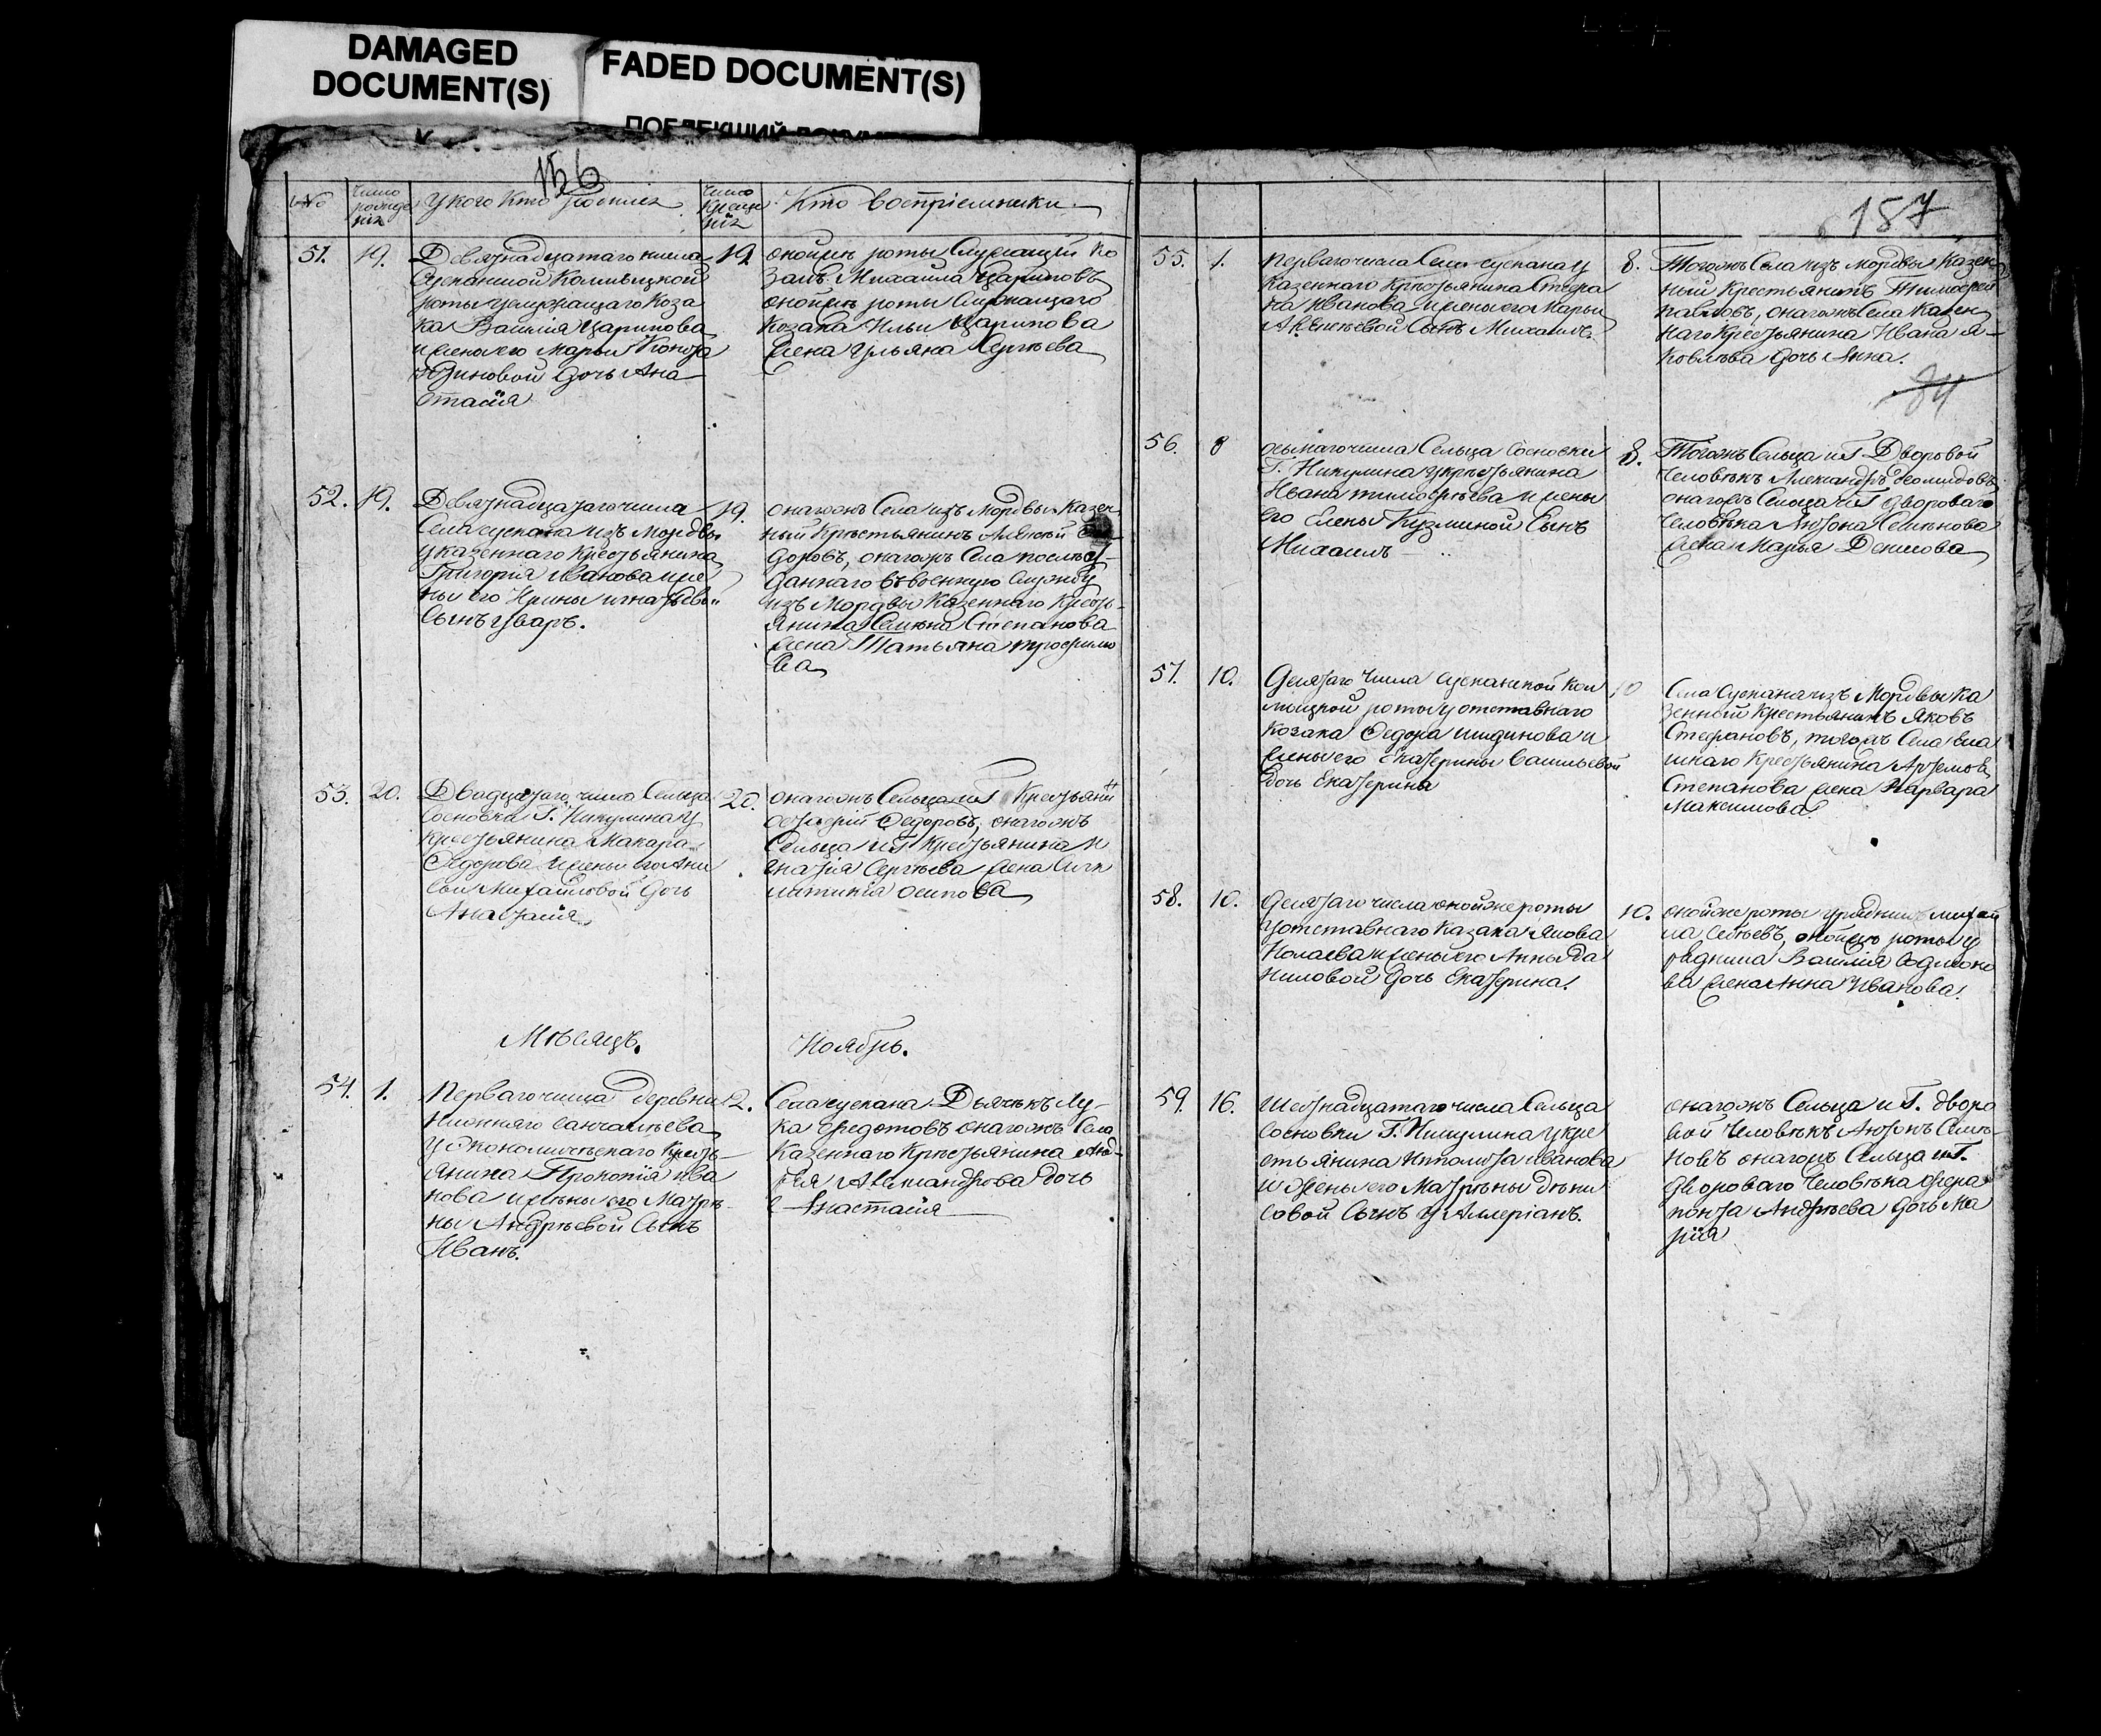 DAMAGED
DOCUMENT(S)
FADED DOCUMENT(S)
156
№
Число рожде нія
У кого кто родился
Число креще нія
Кто воспріемники
51.
19.
Девятнадцатаго числа
Сусканской Колмыцкой
роты у служащаго Коза
ка Василия Царипова
и жены его Марьи Конста
нтиновой дочь Ана
стасія
19.
оной жъ роты Служащій Ко
закъ Михайла Цариповъ
оной жъ роты Служащаго
Козака Ильи Царипова
жена Ульяна Сергѣева
52.
19.
Девятнадцатаго числа
Села сускана изъ Мордвы
у казеннаго крестьянина
Григорія Иванова и же
ны его Ирины игнатьево
Сынъ Уваръ.
19.
онагожъ Села изъ Мордвы Казен
ный Крестьянинъ Алѣксѣй
доровъ, онагожъ Села послѣ
даннаго въ военную Службу
изъ Мордвы Казеннаго Кресть
янина Семена Степанова
жена Татьяна трофимо
ва
53.
20.
Двадцатаго числа Сельца
Сосновки Г. Никулина у
крестьянина Макара
Федорова и жены его Ани
сьи Михайловой дочь
Анастасія
20.
онагожъ Сельца и Г Крестьянин
Федоровъ, онагожъ
Сельца и Г Крестьянина И
гнатія Сергѣева жена
осипова
Мѣсяцъ.
Ноябрь.
54.
1.
Перваго числа деревни
Нижняго санчалѣева
у Экономическаго Кресть
янина Прокопія ива
нова и жены его Матре
ны Андрѣевой Сынъ
Иванъ.
2.
Села сускана Дьячекъ Лу
ка Федотовъ онагожъ Села
Казеннаго Крестьянина Анд
рея Александрова дочь
Анастасія
187
55.
1.
перваго числа Села сускана у
казеннаго крестьянина Стефа
на Иванова и жены его Марьи
Авксѣнтьевой Сынъ Михаилъ.
8.
Тогожъ Села изъ мордвы Казен
ный Крестьянинъ Тимофей
павловъ, онагожъ Села Казен
наго Крестьянина Ивана я
ковлѣва дочь Анна.
84
56.
8
осьмаго числа Сельца сосновки
Г. Никулина у крестьянина
Ивана тимофѣева и жены
его Елены Кузминой Сынъ
Михаилъ
8.
Тогожъ Сельца и Г Дворовой
человѣкъ Александръ
онагожъ Сельца и Г двороваго
человѣка Антона Семенова
жена Марья Денисова
57.
10.
Десятаго числа сусканской Кол
мыцкой роты у отставнаго
Козака Федора и
жены его Екатерины Васильевой
дочь Екатерина
10
Села Сускана изъ Мордвы Ка
зенный Крестьянинъ Яковъ
Стефановъ, тогожъ Села
Крестьянина Артемова
Степанова жена Варвара
Максимова
58.
10.
Десятаго числа оной же роты
у отставнаго Казака Якова
и жены его Анны Да
ниловой дочь Екатерина.
10.
оной же роты урядникъ михай
ла оной же роты у
рядника Василія
ва жена Анна Иванова.
59.
16.
Шестнадцатаго числа Сельца
Сосновки Г. Никулина у кре
стьянина иполита иванова
и жены его Матрены дени
совой Сынъ Уаллеріанъ.
онагожъ Сельца и Г. дворо
вой человѣкъ Антонъ Семе
новъ онагожъ Сельца и Г.
двороваго человѣка фера
понта Андрѣева дочь Ма
рія